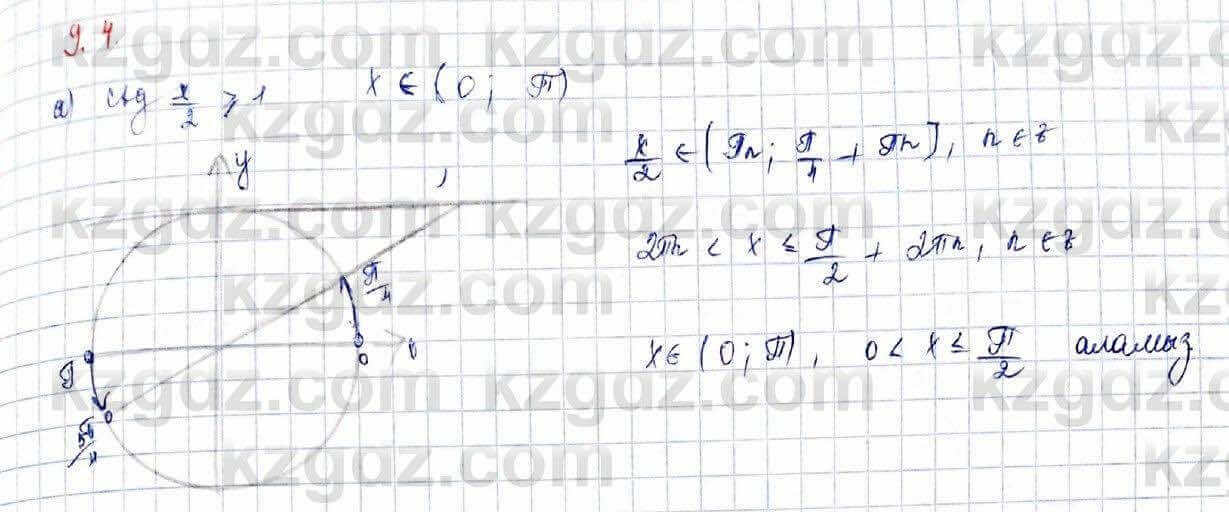 9.4.
а) ctg x/2 ≥ 1 x ∈ (0; π)
x/2 ∈ (πn; π/4 + πn], n ∈ z
2πn < x ≤ π/2 + 2πn, n ∈ z
x ∈ (0; π), 0 < x ≤ π/2 аламыз
y
π/4
0
0
π
5π/4
kzgdz.com kzgdz.com kzgdz.
kzgdz.com kz
kzgdz.com kzgdz.com kzgdz.
kzgdz.com kz
kzgdz.com kzgdz.com kzgdz.
kzgdz.com kz